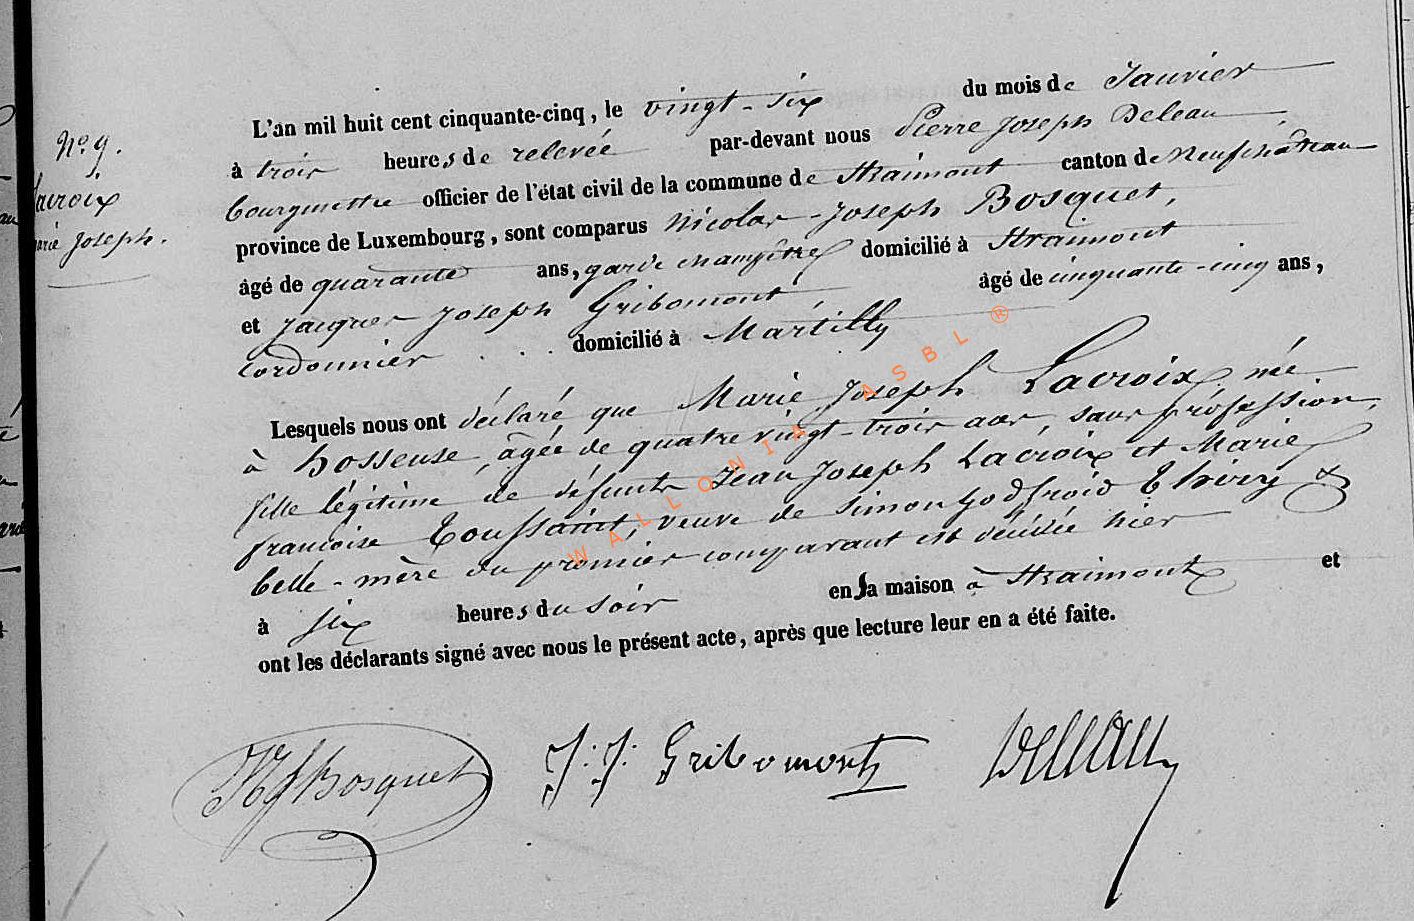 N.° 9.
Lacroix
Marie Joseph.
L'an mil huit cent cinquante-cinq, le vingt-six du mois de Janvier
à trois heures de relevée par-devant nous Pierre Joseph Deleau,
bourgmestre officier de l'état civil de la commune de Straimont canton de Neufchâteau
province de Luxembourg, sont comparus Nicolas-Joseph Bosquet,
âgé de quarante ans, garde champêtre domicilié à Straimont
et Jacques Joseph Gribomont âgé de cinquante-cinq ans,
cordonnier domicilié à Martilly
Lesquels nous ont déclaré que Marie Joseph Lacroix, née
à hosseuse, âgée de quatre vingt-trois ans, sans profession,
fille légitime de défunts Jean Joseph Lacroix et Marie
françoise Toussaint, veuve de Simon Godfroid Thiery &
belle-mère du premier comparant est décédée hier
à six heures du soir en sa maison à Straimont et
ont les déclarants signé avec nous le présent acte, après que lecture leur en a été faite.
NJ Bosquet J. J. Gribomont Deleau
WALLONIA ASBL ®